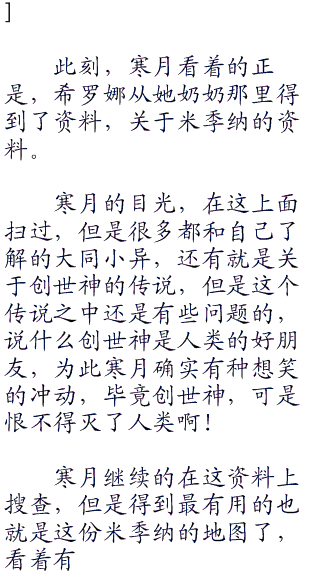 ]
此刻，寒月看着的正
是，希罗娜从她奶奶那里得
到了资料，关于米季纳的资
料。
寒月的目光，在这上面
扫过，但是很多都和自己了
解的大同小异，还有就是关
于创世神的传说，但是这个
传说之中还是有些问题的，
说什么创世神是人类的好朋
友，为此寒月确实有种想笑
的冲动，毕竟创世神，可是
恨不得灭了人类啊！
寒月继续的在这资料上
搜查，但是得到最有用的也
就是这份米季纳的地图了，
看着有